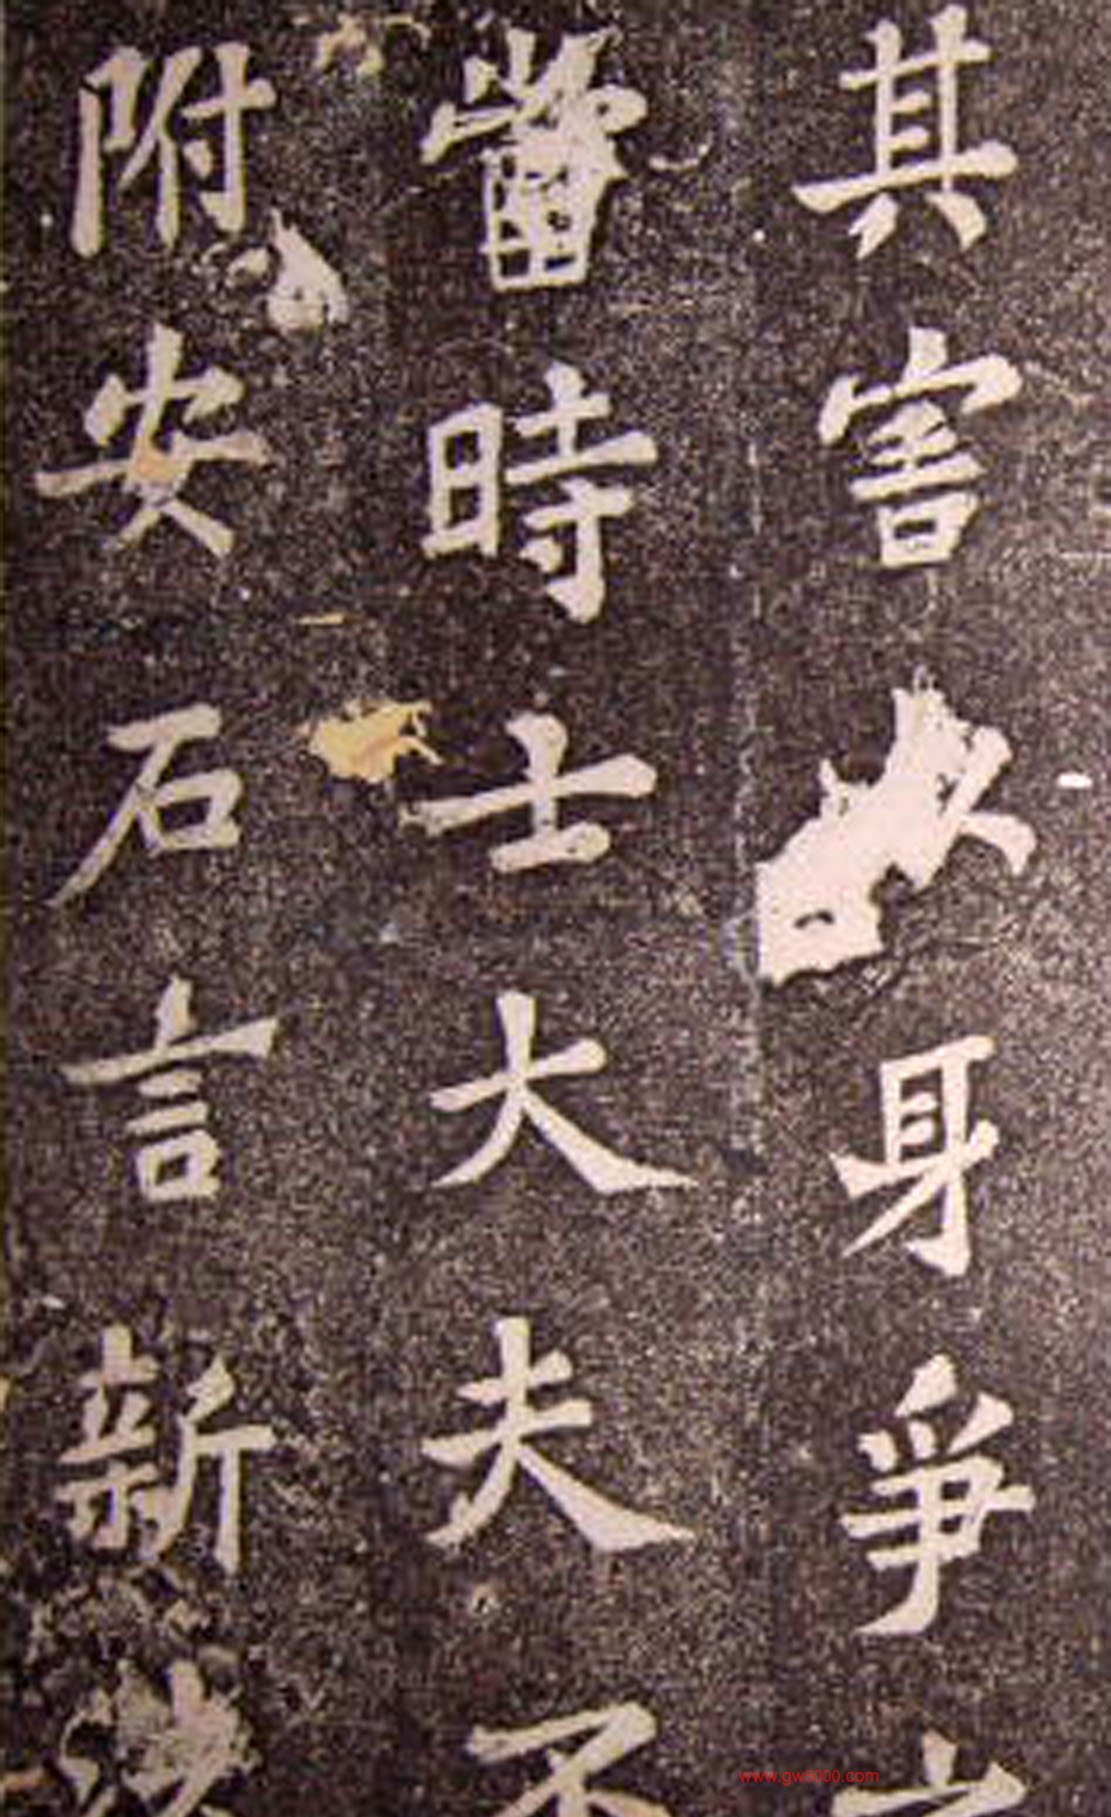 其害身爭
當時士大夫不
附安石言新
www.gw5000.com